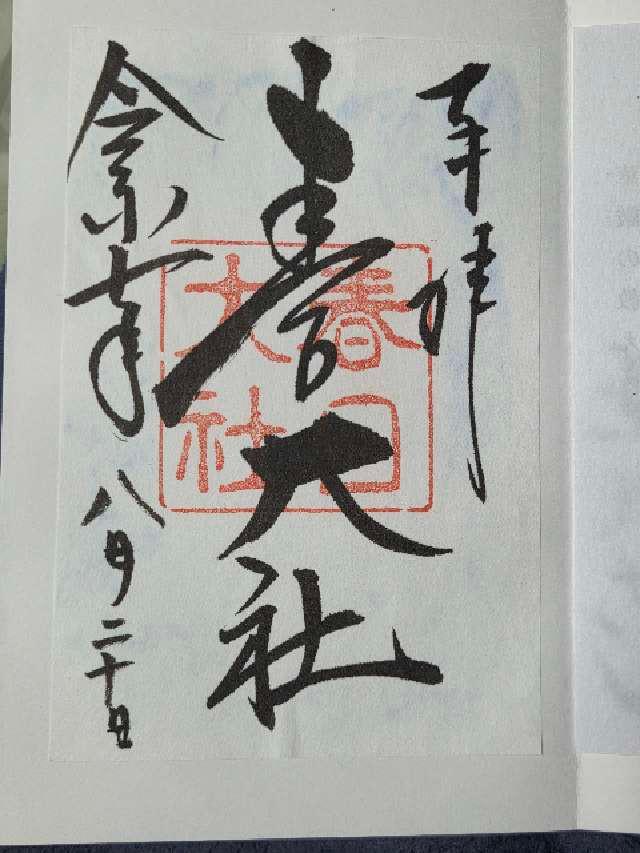 奉拝
春日大社
春日
大社
令和七年八月二十日